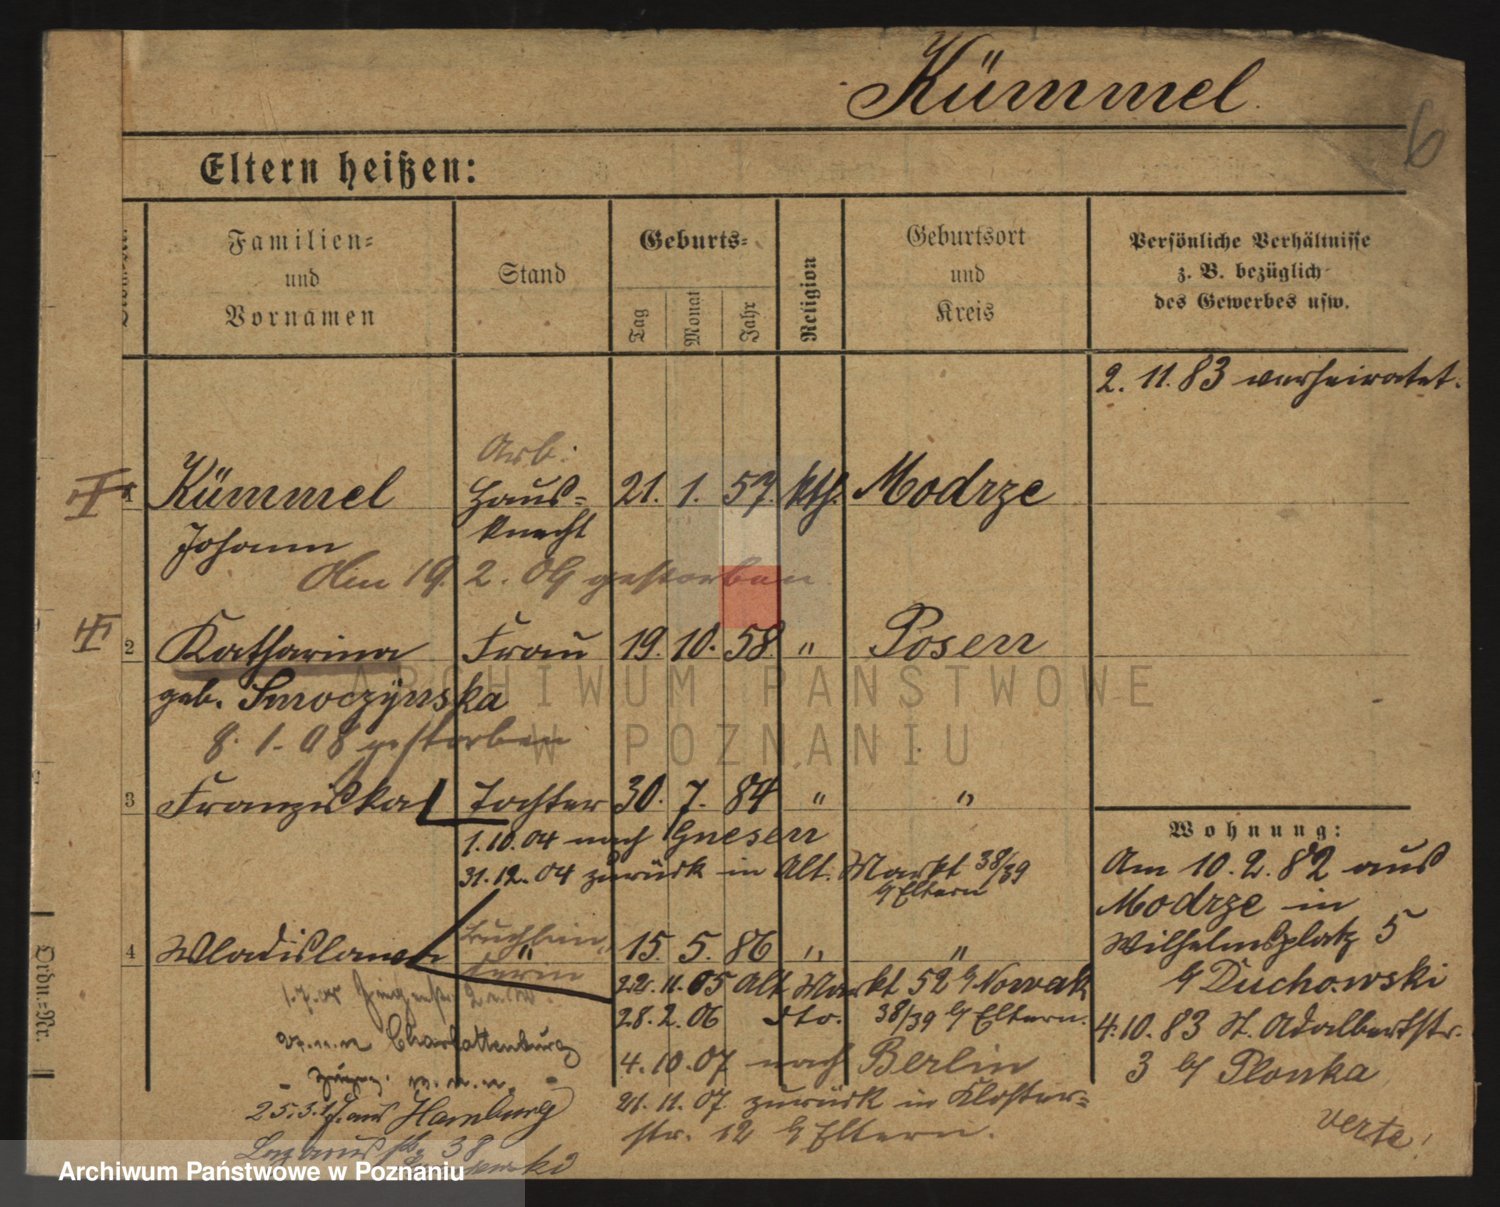 Kümmel
6
Eltern heißen:
Familien- und Vornamen
Stand
Geburts-
Tag
Monat
Jahr
Religion
Geburtsort und Kreis
Persönliche Verhältnisse
z. B. bezüglich
des Gewerbes usw.
2. 11. 83 verheiratet.
Arb.
1 Kümmel Haus- 21. 1. 57. kth. Modrze
Johann knecht
Am 19. 2. 09 gestorben.
2 Katharina Frau 19. 10. 58 " Posen
geb. Smoczynska
8. 1. 08 gestorben
3 Franziska Tochter 30. 7. 84 " "
1. 10. 04 nach Gnesen
31. 12. 04 zurück in Alt. Markt 38/39
b/ Eltern
4 Wladislawa " 15. 5. 86 " "
22. 11. 05 Alt Markt 52 b/ Nowak
28. 2. 06 dto. 38/39 b/ Eltern.
4. 10. 07 nach Berlin
21. 11. 07 zurück in Kloster-
str. 12 b/ Eltern.
Charlottenburg
aus Hamburg
38
Wohnung:
Am 10. 2. 82 aus
Modrze in
Wilhelmsplatz 5
b/ Duchowski
4. 10. 83 St. Adalbertstr.
3 b/ Plonka
verte!
Ordn.-Nr.
ARCHIWUM PAŃSTWOWE
W POZNANIU
Archiwum Państwowe w Poznaniu